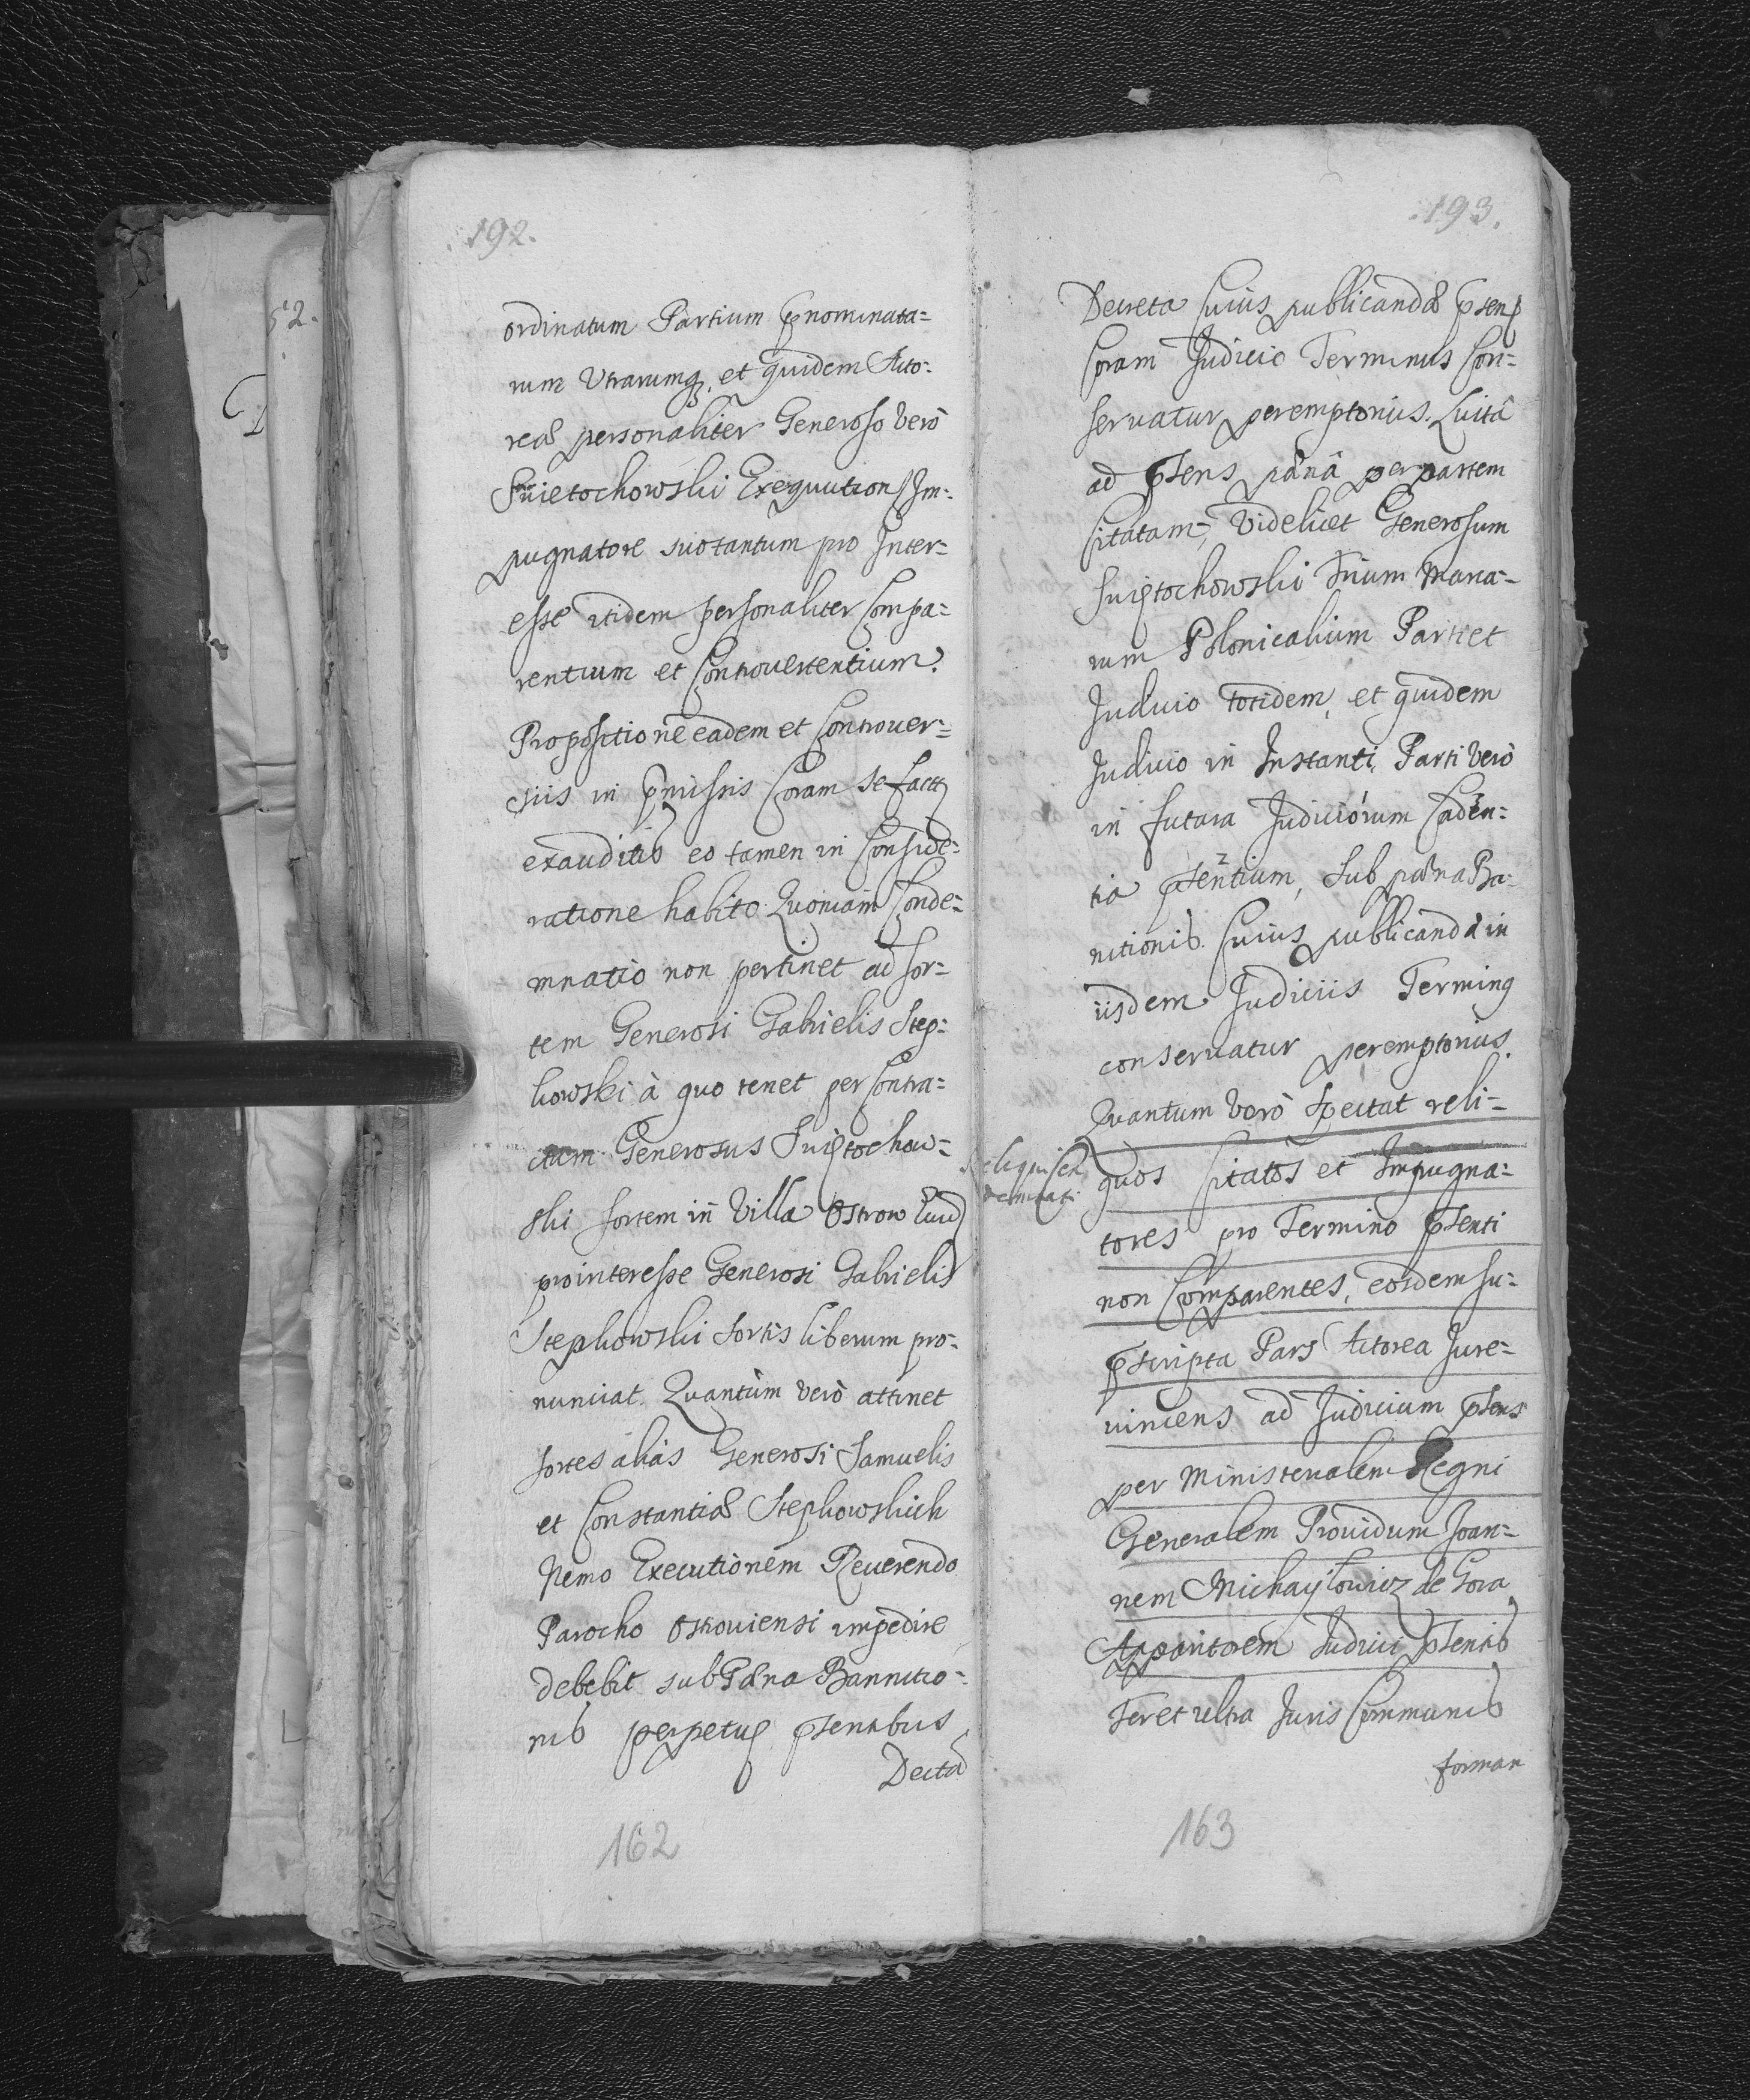 192.
ordinatum Partium pnomnata=
rum Utrarumq, et quidem Acto-
rea personaliter Generoso vero
Swietochowski Exequution Im-
pugnatore suo tantum pro Inter=
esse itidem personaliter Compa=
rentium et Controvertentium.
Propositione eadem et Controver=
siis in pmissis Coram se factis
exauditis eo tamen in Conside=
ratione habito Quoniam Conde=
mnatio non pertinet ad sor=
tem Generosi Gabrielis Step-
kowski à quo tenet per Contra=
ctum Generosus Swiętochow=
ski sortem in Villa Ostrow
pro interesse Generosi Gabrielis
Stepkowski sortis liberum pro-
nunciat. Quantùm verò attinet
sortes alias Generosi Samuelis
et Constantiæ Stepkowskich
Nemo Executionem Reverendo
Parocho Ostroviensi impedire
debebit sub Pæna Bannitio-
nis perpetuę psentibus
Decta
162
193.
Decreta Cuius publicandæ psens
Coram Judicio Terminus Con-
servatur peremptorius. Luitâ
ad psens pænâ per partem
Citatam, videlicet Generosum
Swiętochowski Trium Marca-
rum Polonicalium Parti et
Judicio totidem, et quidem
Judicio in Instanti, Parti verò
in futura Judiciorum Caden-
tia psentium, sub pæna Ba-
nitionis Cuius publicandæ in
iisdem Judiciis Terminus
conservatur peremptorius.
Quantum verò spectat reli-
Reliqui Con
demnati
quos Citatos et Impugna-
tores pro Termino psenti
non Comparentes, eosdem su-
pscripta Pars Actorea Jure-
vincens ad Judicium psens
per Ministerialem Regni
Generalem Providum Joan-
nem Michayłowicz de Gora
Apparitorem Judicii psentis
Ter et ultra Juris Communis
formam
163